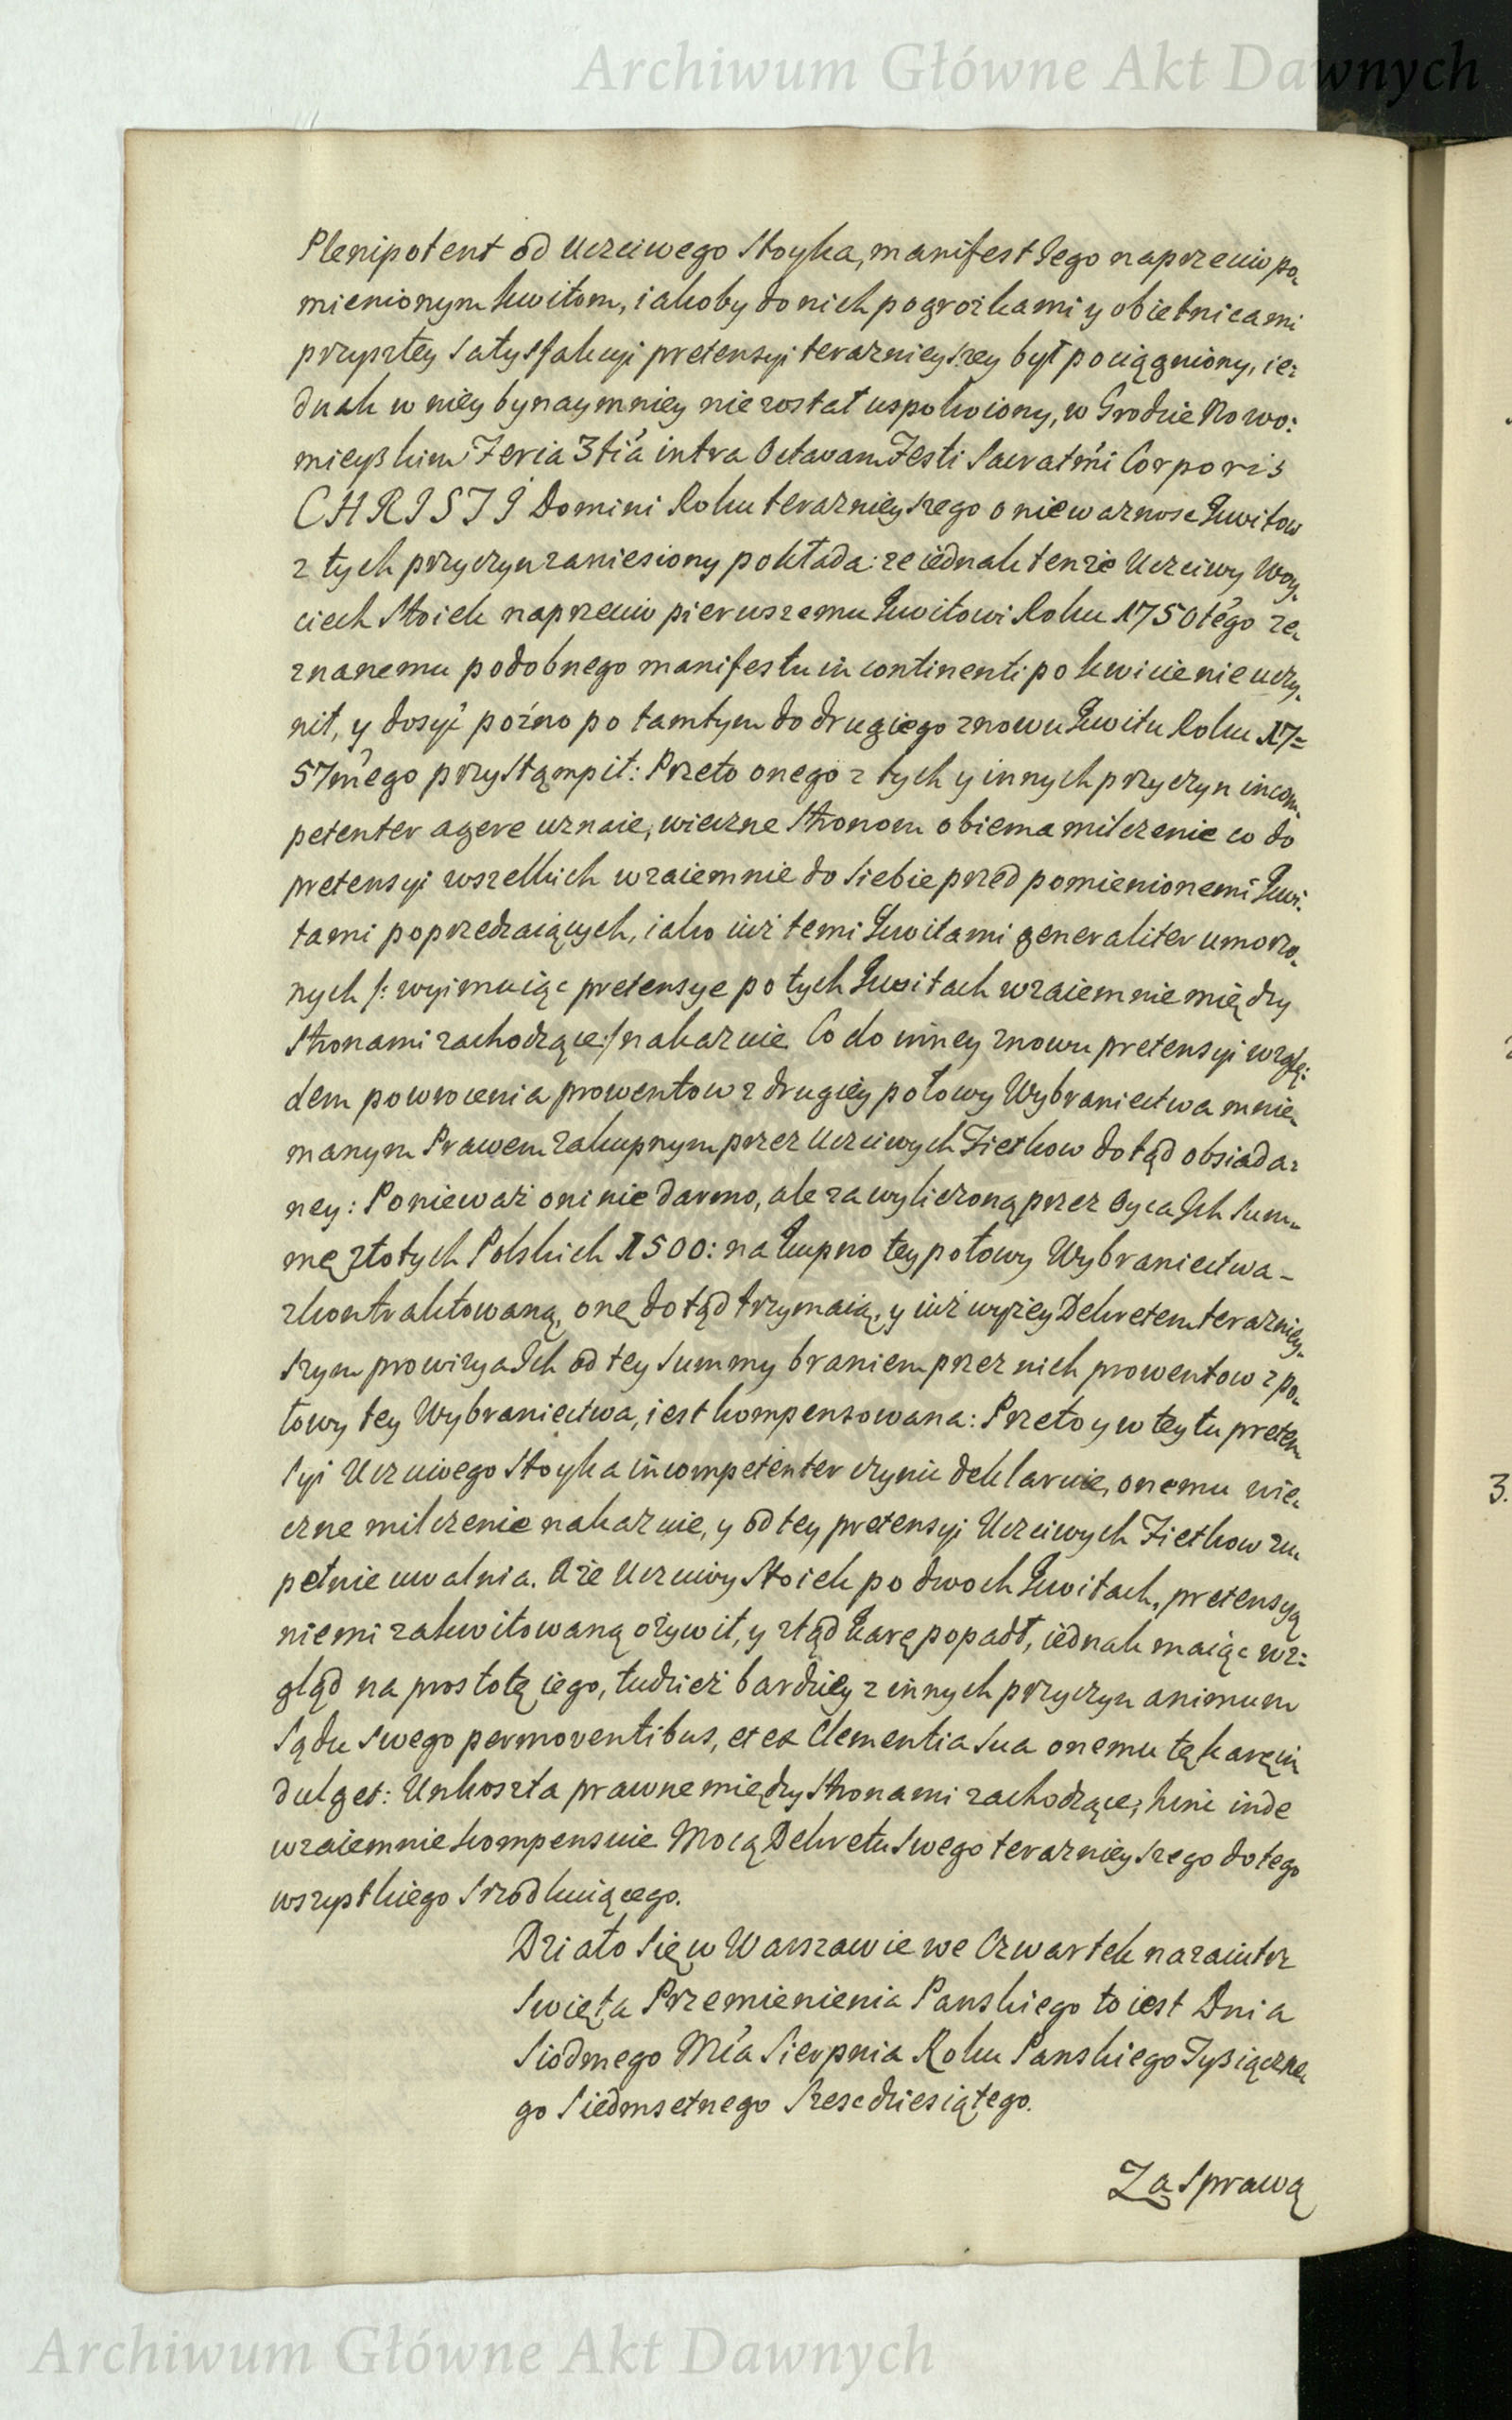 Archiwum Główne Akt Dawnych
Plenipotent od Uczciwego Stoyka, manifest Jego naprzeciw po-
mienionym kwitom, iakoby do nich pogrozkami y obietnicami
przyszłey satysfakcyi pretensyi teraznieyszey był pociągniony, ie=
dnak w niey bynaymniey nie został uspokoiony, w Grodzie Nowo:
mieyskim Feria 3tia intra Octavam Festi Sacratmi Corporis
CHRISTI Domini Roku teraznieyszego o niewaznosc Kwitow
z tych przyczyn zaniesiony pokłada: ze iednak tenze Uczciwy Woy-
ciech Stoiek naprzeciw pierwszemu Kwitowi Roku 1750tego ze-
znanemu podobnego manifestu in continenti po kwicie nie uczy-
nił, y dosyć poźno po tamtym do drugiego znowu Kwitu Roku 17=
57mego przystąmpił: Przeto onego z tych y innych przyczyn incom-
petenter agere uznaie, wieczne Stronom obiema milczenie co do
pretensyi wszelkich wzaiemnie do siebie przed pomienionemi Kwi-
tami poprzedzaiących, iako iuż temi Kwitami generaliter umorzo-
nych /: wyimuiąc pretensye po tych Kwitach wzaiemnie między
Stronami zachodzące:/ nakazuie. Co do inney znowu pretensyi wzglę-
dem powrocenia prowentow z drugiey połowy Wybraniectwa mnie-
manym Prawem zakupnym przez Uczciwych Zietkow dotąd obsiada=
ney: Ponieważ oni nie darmo, ale za wyliczoną przez Oyca Ich Sum-
mę złotych Polskich 1500: na kupno tey połowy Wybraniectwa -
zkontraktowaną, onę dotąd trzymaią, y iuż wyżey Dekretem teraźniey-
szym prowizya Ich od tey Summy braniem przez nich prowentow z po-
łowy tey Wybraniectwa, iest kompensowana: Przeto y w tey tu preten-
syi Uczciwego Stoyka incompetenter czynić deklaruie, onemu wie-
czne milczenie nakazuie, y od tey pretensyi Uczciwych Zietkow zu-
pełnie uwalnia. A że Uczciwy Stoiek po dwoch Kwitach, pretensyą
niemi zakwitowaną ożywił, y ztąd karę popadł, iednak maiąc wz=
gląd na prostotę iego, tudzież bardziey z innych przyczyn animum
Sądu Swego permoventibus, et ex Clementia Sua onemu tę karę in
dulget: Unkoszta prawne między Stronami zachodzące, hinc inde
wzaiemnie kompensuie Mocą Dekretu Swego teraznieyszego do tego
wszystkiego srzodkuiącego.
Działo się w Warszawie we Czwartek nazaiutrz
Swięta Przemienienia Panskiego to iest Dnia
Siodmego Mca Sierpnia Roku Panskiego Tysiączne-
go Siedmsetnego Szescdziesiątego.
Za Sprawą
3.
Archiwum Główne Akt Dawnych